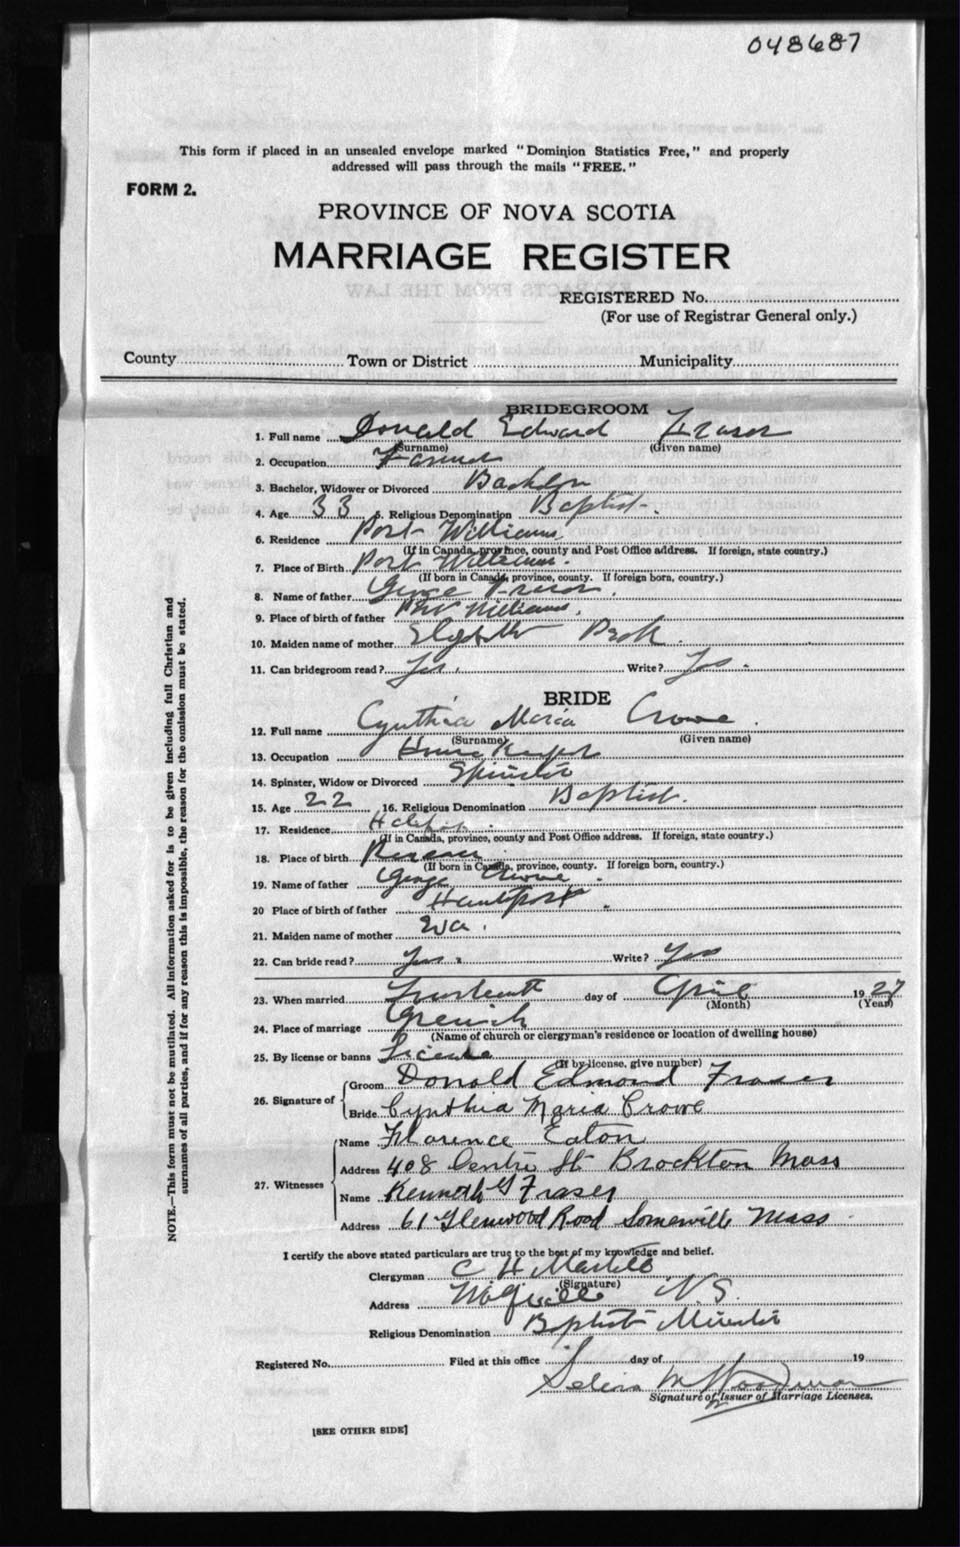 048687
This form if placed in an unsealed envelope marked "Dominion Statistics Free," and properly
addressed will pass through the mails "FREE."
FORM 2.
PROVINCE OF NOVA SCOTIA
MARRIAGE REGISTER
REGISTERED No.
(For use of Registrar General only.)
County Town or District Municipality
BRIDEGROOM
1. Full name Donald Edward Fraser
(Surname) (Given name)
2. Occupation Farmer
3. Bachelor, Widower or Divorced Bachelor
4. Age 33 5. Religious Denomination Baptist
6. Residence Port Williams
(If in Canada, province, county and Post Office address. If foreign, state country.)
7. Place of Birth Port Williams.
(If born in Canada, province, county. If foreign born, country.)
8. Name of father George Fraser.
9. Place of birth of father Port Williams.
10. Maiden name of mother
11. Can bridegroom read? Yes. Write? Yes.
BRIDE
12. Full name Cynthia Maria Crowe.
(Surname) (Given name)
13. Occupation House Keeper
14. Spinster, Widow or Divorced Spinster
15. Age 22 16. Religious Denomination Baptist.
17. Residence Halifax.
(If in Canada, province, county and Post Office address. If foreign, state country.)
18. Place of birth
(If born in Canada, province, county. If foreign born, country.)
19. Name of father George Crowe.
20 Place of birth of father Hantsport.
21. Maiden name of mother Eva.
22. Can bride read? Yes. Write? Yes
23. When married Fourteenth day of April 1927
(Month) (Year)
24. Place of marriage Grenich
(Name of church or clergyman's residence or location of dwelling house)
25. By license or banns License
(If by license, give number)
26. Signature of Groom Donald Edmond Fraser
Bride Cynthia Maria Crowe
27. Witnesses Name Florence Eaton
Address 408 Centre St Brockton Mass
Name Kenneth G Fraser
Address 61 Glenwood Road Somerville Mass
I certify the above stated particulars are true to the best of my knowledge and belief.
Clergyman C H
(Signature)
Address N.S.
Religious Denomination Baptist Minister
Registered No. Filed at this office day of 19
Selina M Woodman
Signature of Issuer of Marriage Licenses.
[SEE OTHER SIDE]
NOTE.—This form must not be mutilated. All information asked for is to be given including full Christian and
surnames of all parties, and if for any reason this is impossible, the reason for the omission must be stated.